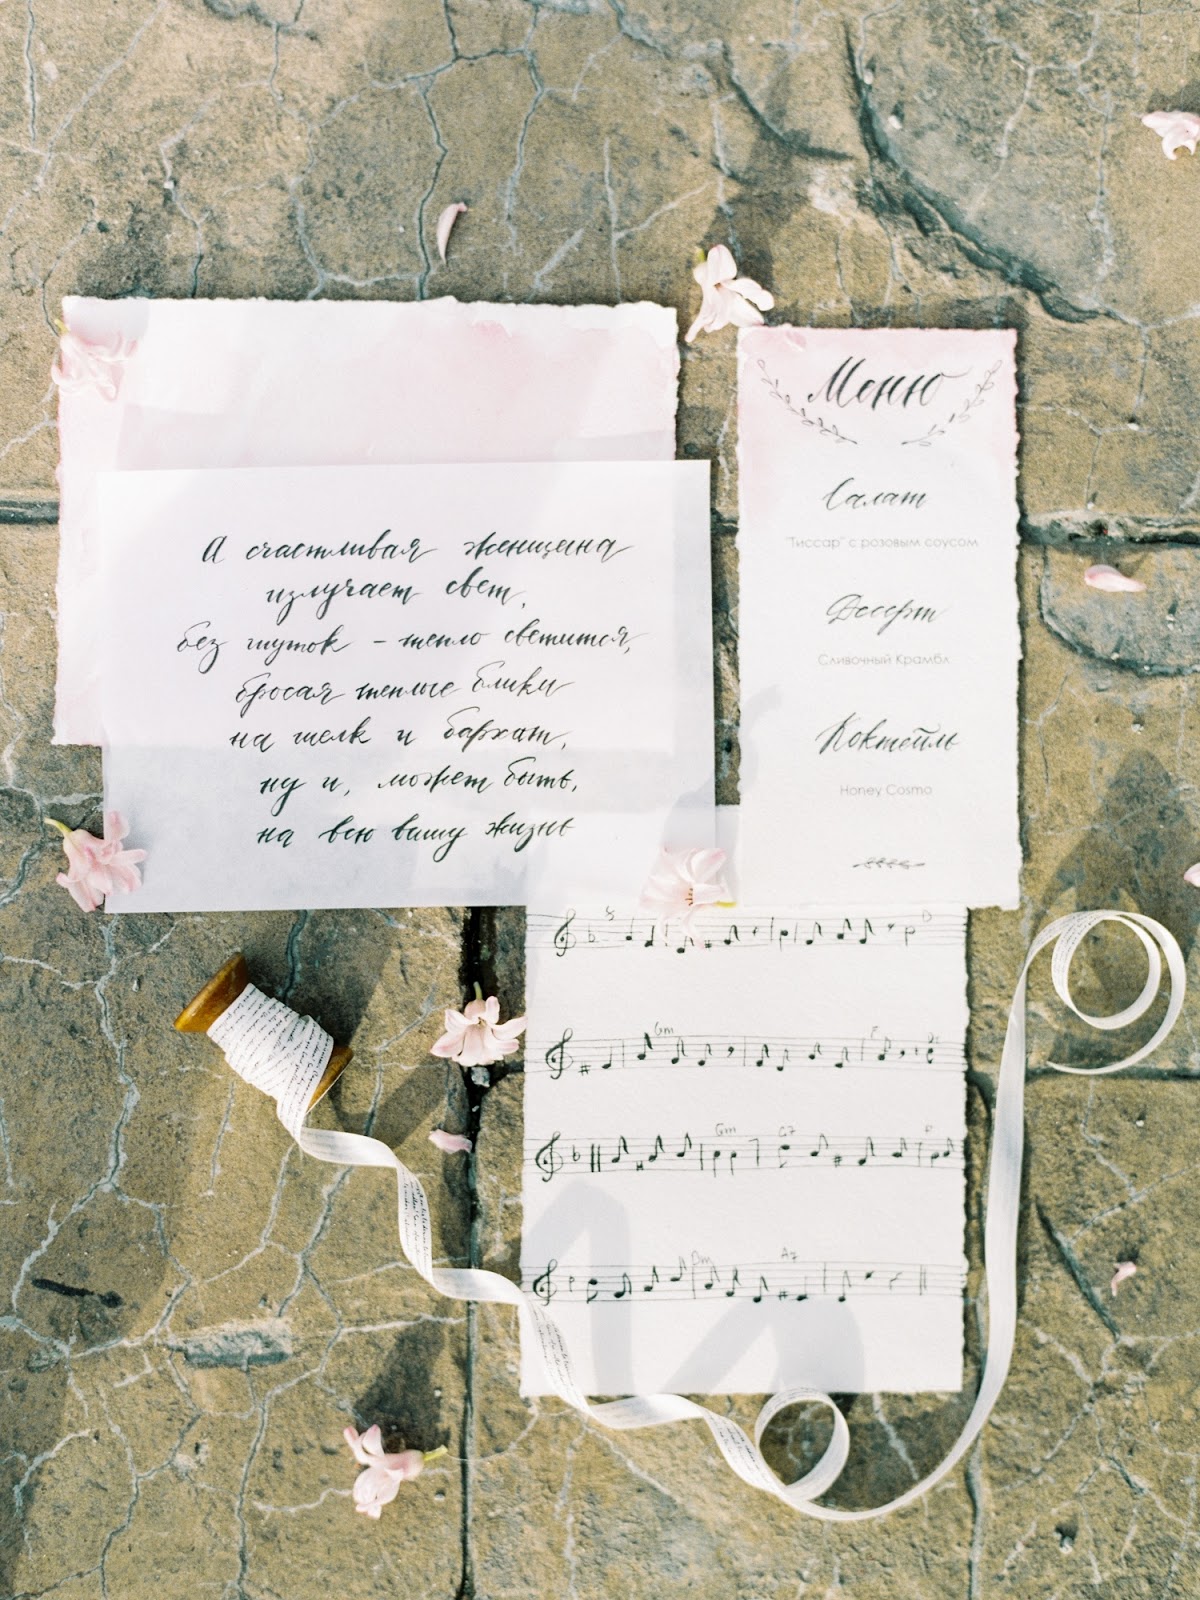 А счастливая женщина
излучает свет,
без шуток – тепло светится,
бросая теплые блики
на шелк и бархат,
ну и, может быть,
на всю вашу жизнь
Меню
Салат
"Тиссар" с розовым соусом
Десерт
Сливочный Крамбл
Коктейль
Honey Cosmo
D
Gm
F
Gm C7
Dm A7